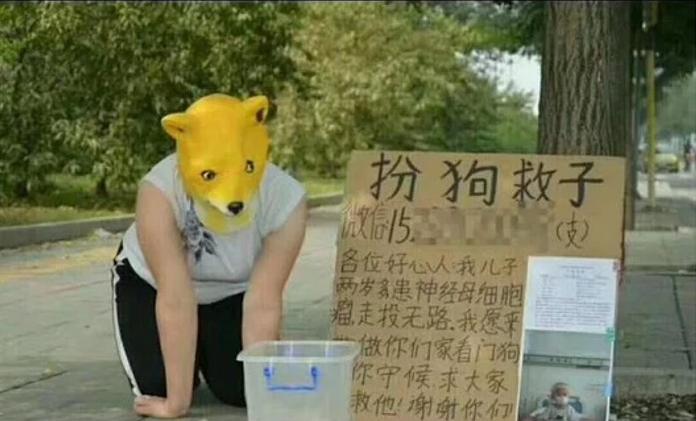 扮狗救子
微信15 (支)
各位好心人:我儿子
两岁多患神经母细胞
瘤,走投无路.我愿来
做你们家看门狗
你守候,求大家
救他!谢谢你们